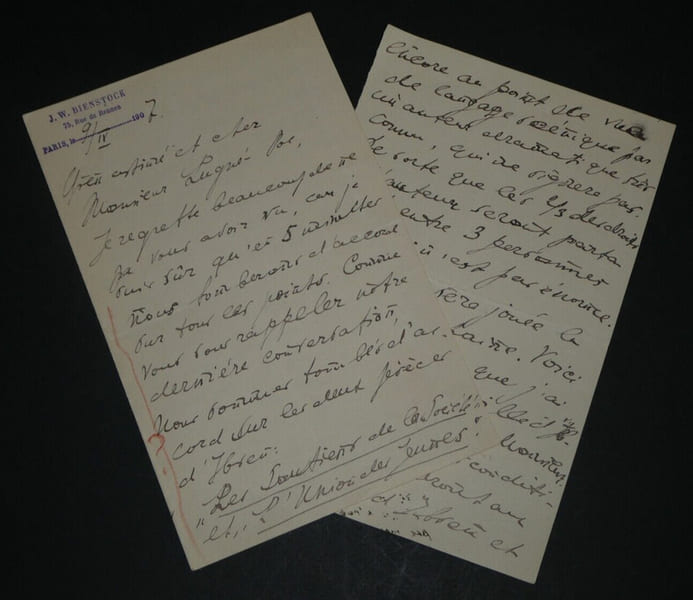 J. W. BIENSTOCK
75, Rue de Rennes
PARIS, le 9/IV 1907.
Très estimé et cher
Monsieur Lugné Poe,
Je regrette beaucoup de ne
pas vous avoir vu, car je
suis sûr qu'en 5 minutes
nous tomberons d'accord
sur tous les points. Comme
vous vous rappelez notre
dernière conversation,
nous sommes tombés d'ac-
cord sur les deux pièces
d'Ibsen:
"Les Soutiens de la Société"
et "L'Union des Jeunes".
encore au point de vue
de langage scénique par
un auteur dramatique très
connu, qui ne signera pas.
de sorte que les 2/3 des droits
d'auteur seront parta
entre 3 personnes
n'est pas énorme.
jouée la
Voici
que j'ai
Monsieur
conditi-
d'Ibsen et